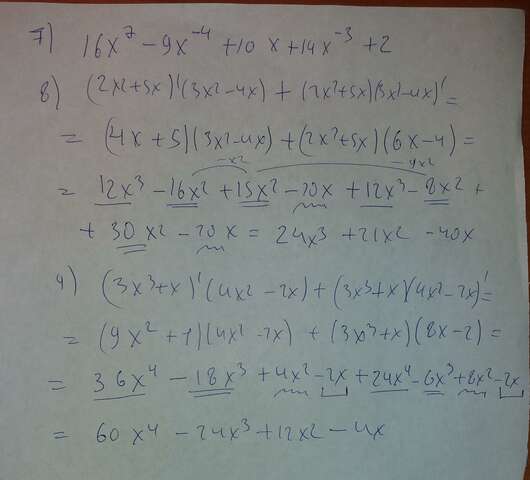 7) 16x⁷ - 9x⁻⁴ + 10x + 14x⁻³ + 2
8) (2x2 + 5x)'(3x² - 4x) + (2x² + 5x)(3x² - 4x)' =
= (4x + 5)(3x² - 4x) + (2x² + 5x)(6x - 4) =
-x² -4x2
= 12x³ - 16x² + 15x² - 20x + 12x³ - 8x2 +
+ 30x2 - 20x = 24x³ + 21x2 - 40x
9) (3x³ + x)'(4x² - 2x) + (3x³ + x)(4x² - 2x)' =
= (9x² + 1)(4x² - 2x) + (3x³ + x)(8x - 2) =
= 36x⁴ - 18x³ + 4x² - 2x + 24x⁴ - 6x³ + 8x² - 2x
= 60x⁴ - 24x³ + 12x2 - 4x